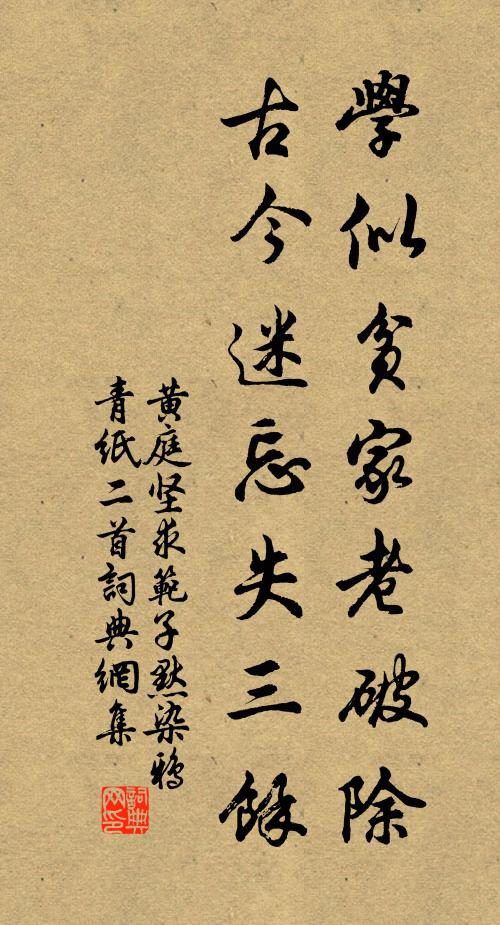 學似貧家老破除
古今迷忘失三餘
黄庭坚求範子默染鴉
青紙二首詞典網集
詞典網印